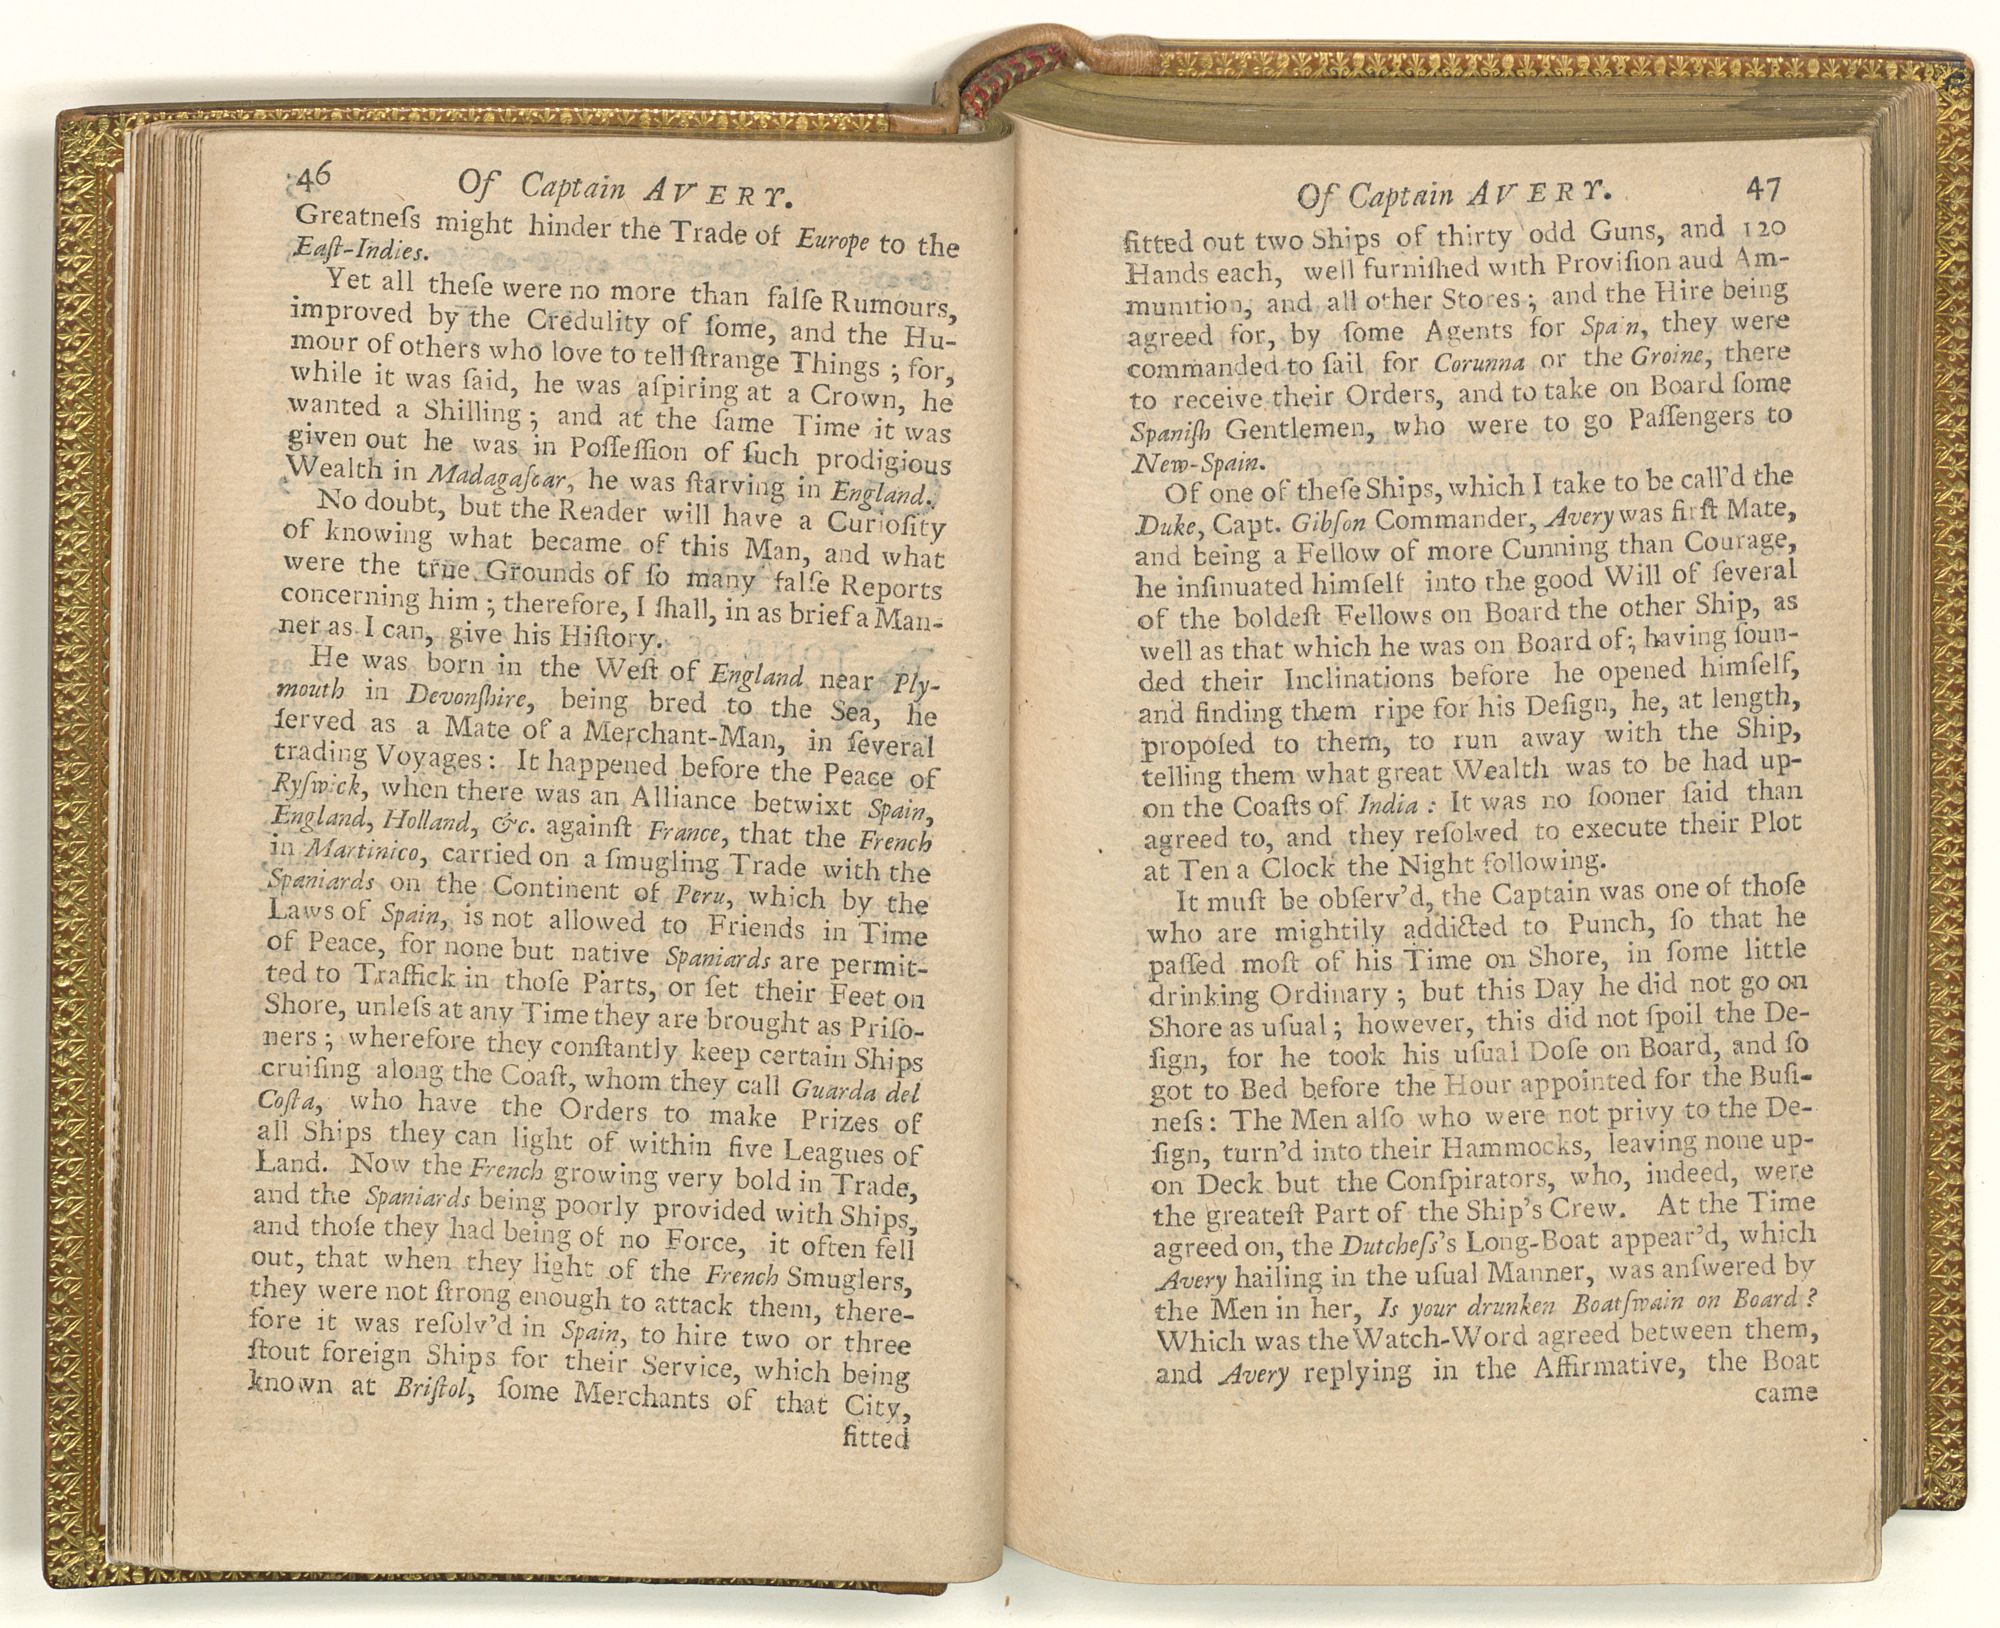 46
Of Captain AVERY.
Greatneſs might hinder the Trade of Europe to the
Eaſt-Indies.
Yet all theſe were no more than falſe Rumours,
improved by the Credulity of ſome, and the Hu-
mour of others who love to tell ſtrange Things; for,
while it was ſaid, he was aſpiring at a Crown, he
wanted a Shilling; and at the ſame Time it was
given out he was in Poſſeſſion of ſuch prodigious
Wealth in Madagaſcar, he was ſtarving in England.
No doubt, but the Reader will have a Curioſity
of knowing what became of this Man, and what
were the true Grounds of ſo many falſe Reports
concerning him; therefore, I ſhall, in as brief a Man-
ner as I can, give his Hiſtory.
He was born in the Weſt of England near Ply-
mouth in Devonſhire, being bred to the Sea, he
ſerved as a Mate of a Merchant-Man, in ſeveral
trading Voyages: It happened before the Peace of
Ryſwick, when there was an Alliance betwixt Spain,
England, Holland, &c. againſt France, that the French
in Martinico, carried on a ſmugling Trade with the
Spaniards on the Continent of Peru, which by the
Laws of Spain, is not allowed to Friends in Time
of Peace, for none but native Spaniards are permit-
ted to Traffick in thoſe Parts, or ſet their Feet on
Shore, unleſs at any Time they are brought as Priſo-
ners; wherefore they conſtantly keep certain Ships
cruiſing along the Coaſt, whom they call Guarda del
Coſta, who have the Orders to make Prizes of
all Ships they can light of within five Leagues of
Land. Now the French growing very bold in Trade,
and the Spaniards being poorly provided with Ships,
and thoſe they had being of no Force, it often fell
out, that when they light of the French Smuglers,
they were not ſtrong enough to attack them, there-
fore it was reſolv'd in Spain, to hire two or three
ſtout foreign Ships for their Service, which being
known at Briſtol, ſome Merchants of that City,
fitted
Of Captain AVERY.
47
fitted out two Ships of thirty odd Guns, and 120
Hands each, well furniſhed with Proviſion aud Am-
munition, and all other Stores; and the Hire being
agreed for, by ſome Agents for Spain, they were
commanded to ſail for Corunna or the Groine, there
to receive their Orders, and to take on Board ſome
Spaniſh Gentlemen, who were to go Paſſengers to
New-Spain.
Of one of theſe Ships, which I take to be call'd the
Duke, Capt. Gibſon Commander, Avery was firſt Mate,
and being a Fellow of more Cunning than Courage,
he inſinuated himſelf into the good Will of ſeveral
of the boldeſt Fellows on Board the other Ship, as
well as that which he was on Board of; having ſoun-
ded their Inclinations before he opened himſelf,
and finding them ripe for his Deſign, he, at length,
propoſed to them, to run away with the Ship,
telling them what great Wealth was to be had up-
on the Coaſts of India: It was no ſooner ſaid than
agreed to, and they reſolved to execute their Plot
at Ten a Clock the Night following.
It muſt be obſerv'd, the Captain was one of thoſe
who are mightily addicted to Punch, ſo that he
paſſed moſt of his Time on Shore, in ſome little
drinking Ordinary; but this Day he did not go on
Shore as uſual; however, this did not ſpoil the De-
ſign, for he took his uſual Doſe on Board, and ſo
got to Bed before the Hour appointed for the Buſi-
neſs: The Men alſo who were not privy to the De-
ſign, turn'd into their Hammocks, leaving none up-
on Deck but the Conſpirators, who, indeed, were
the greateſt Part of the Ship's Crew. At the Time
agreed on, the Dutcheſs's Long-Boat appear'd, which
Avery hailing in the uſual Manner, was anſwered by
the Men in her, Is your drunken Boatſwain on Board?
Which was the Watch-Word agreed between them,
and Avery replying in the Affirmative, the Boat
came